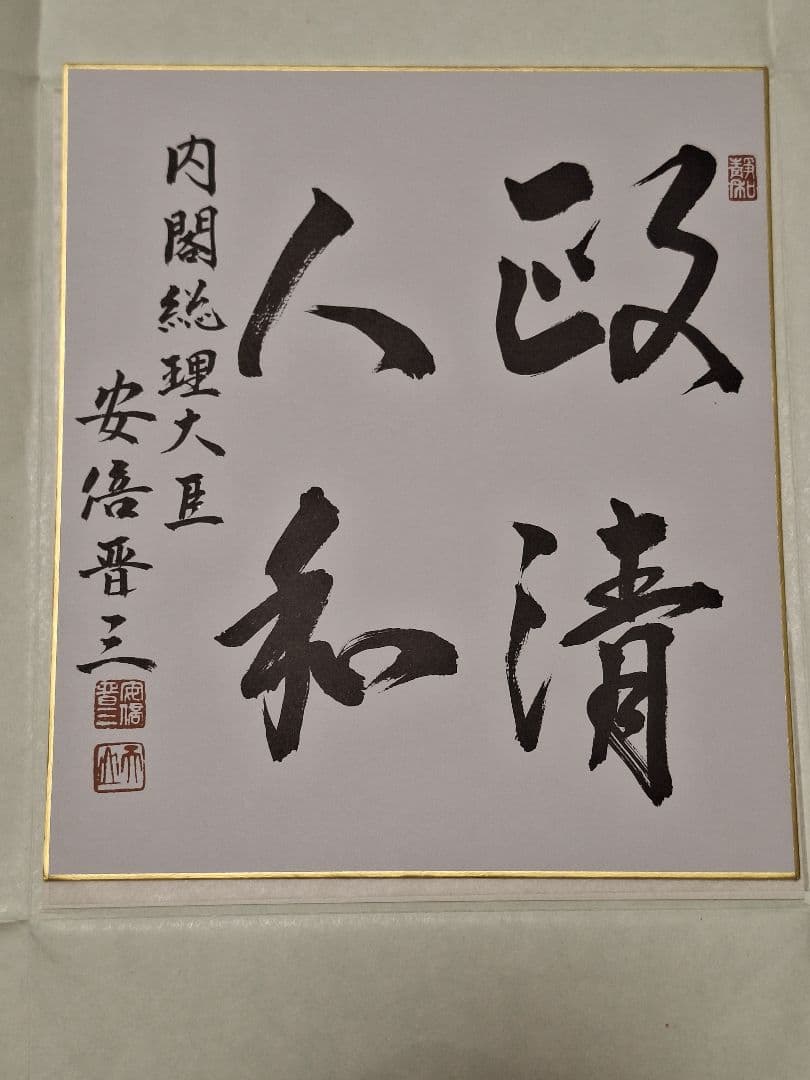 政清
人和
内閣総理大臣
安倍晋三
靜和
安倍
晋三